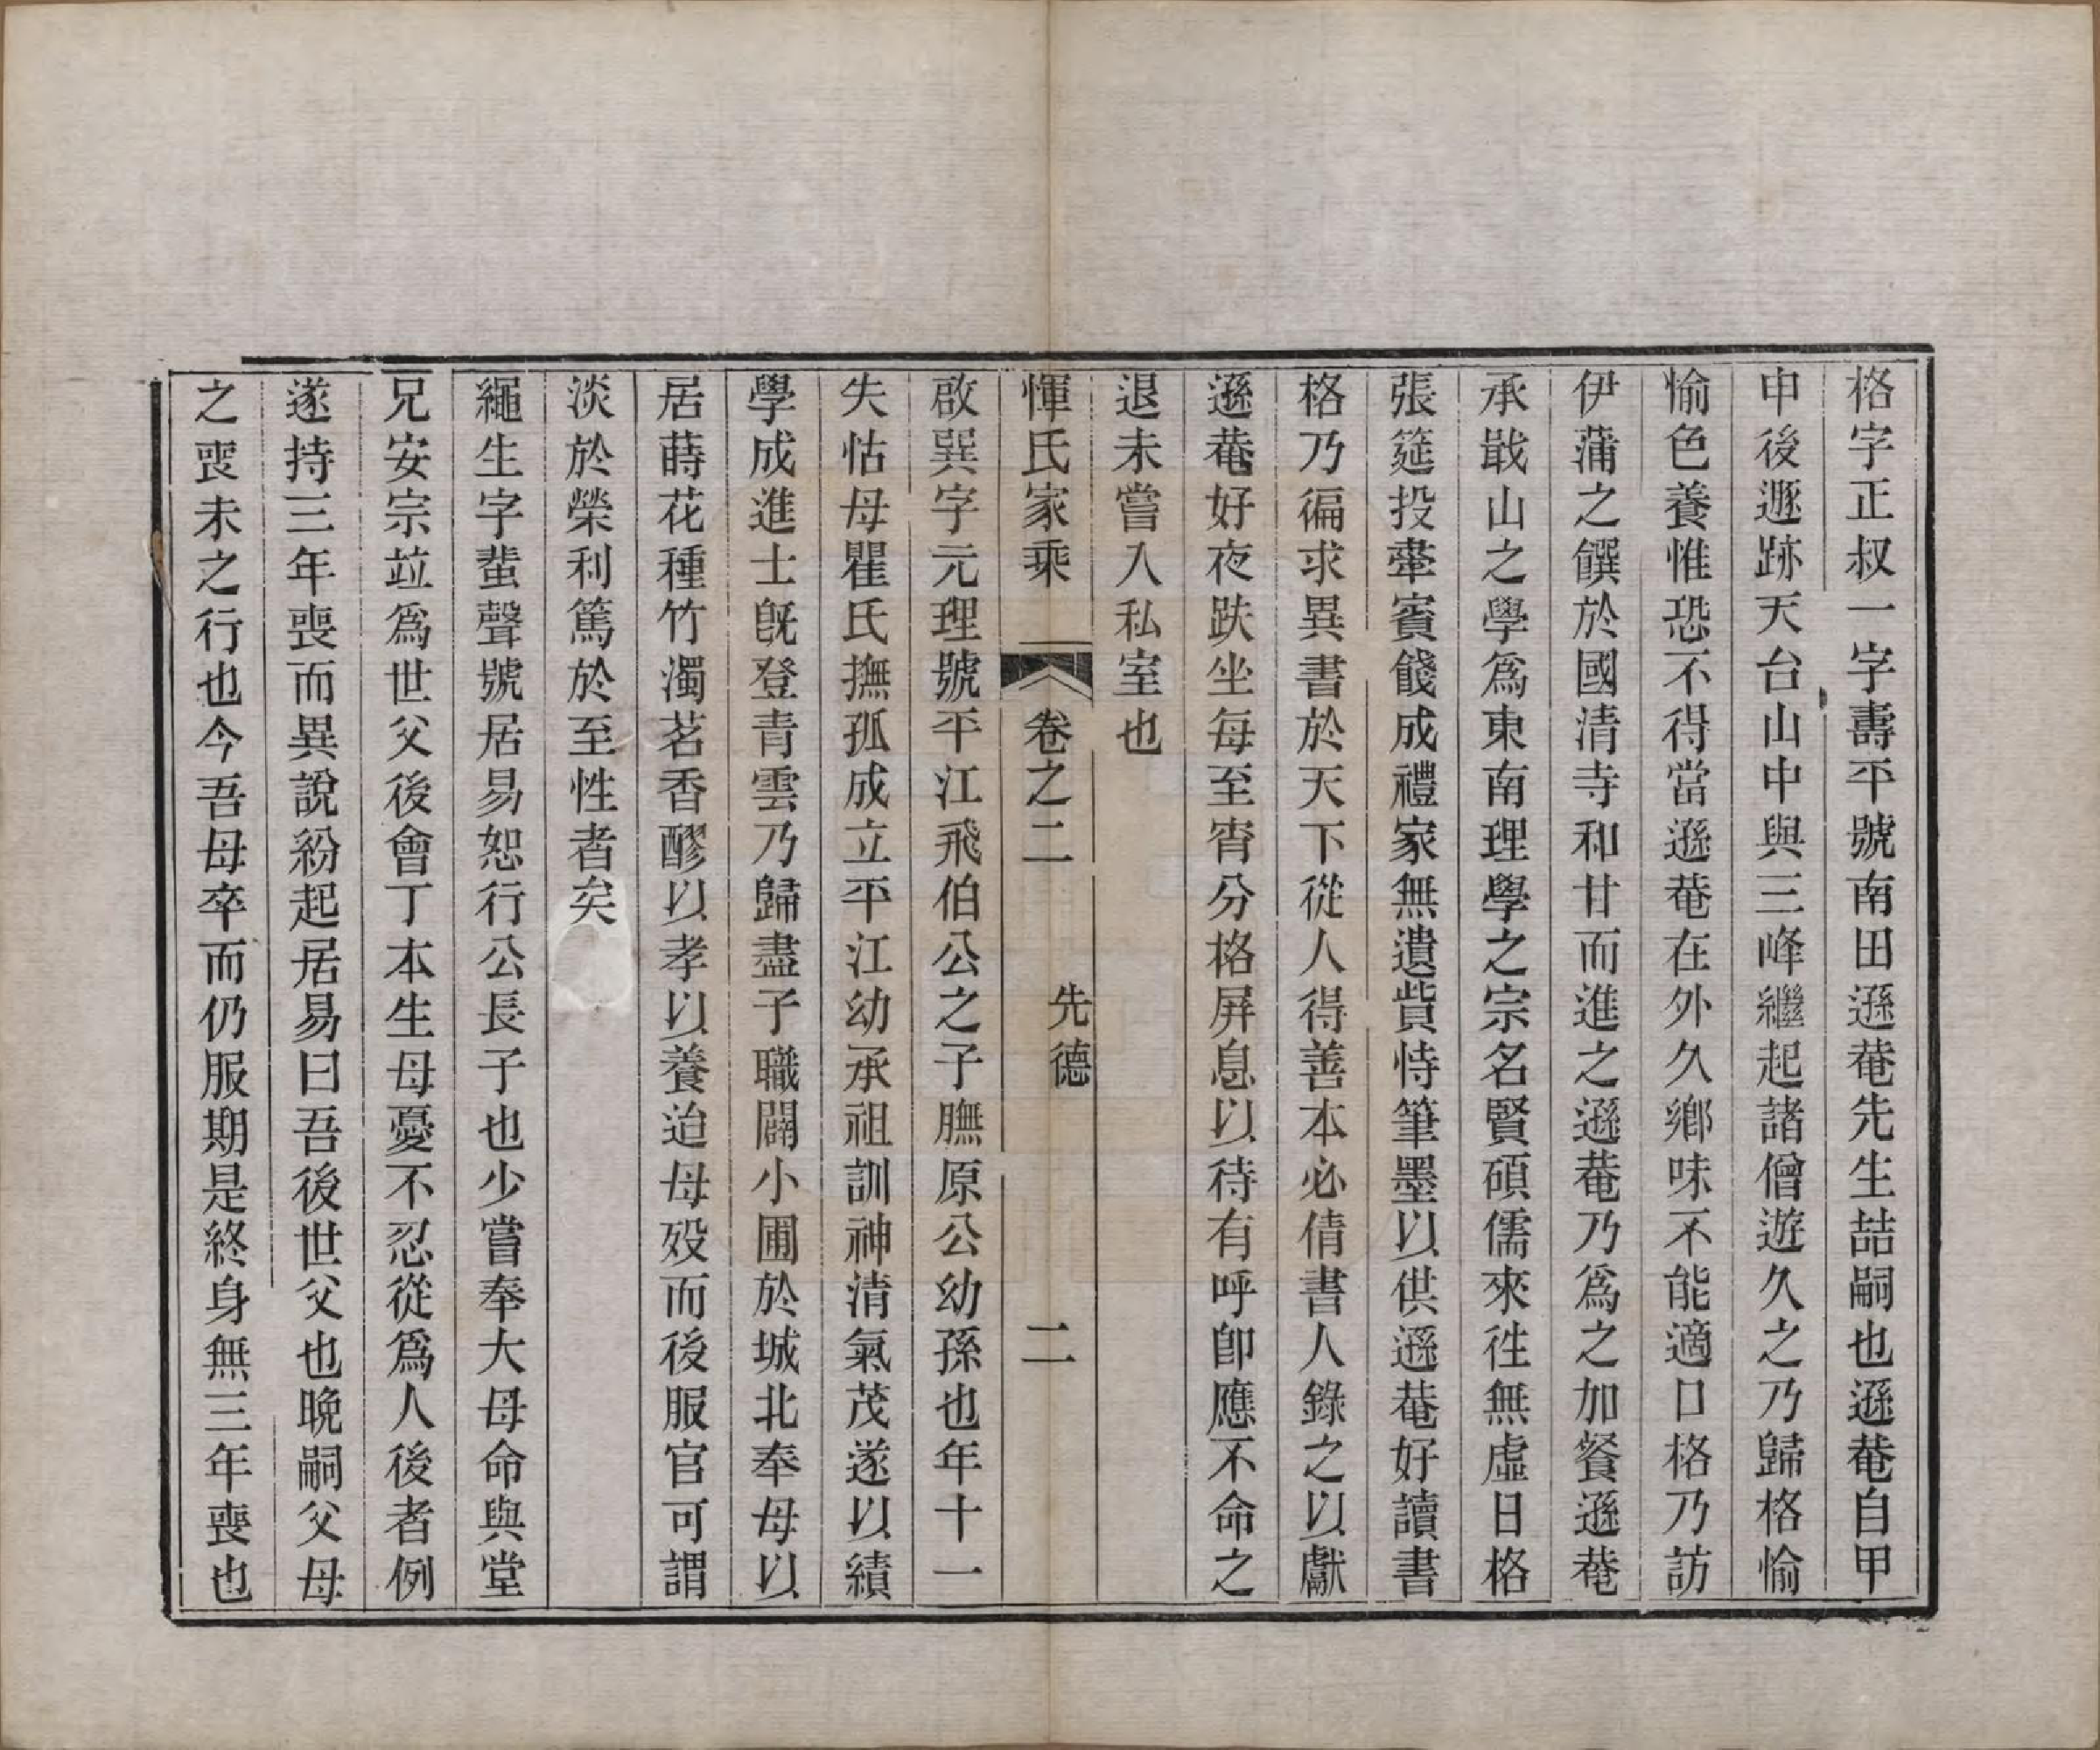 格字正叔一字壽平號南田遜菴先生喆嗣也遜菴自甲
申後遯跡天台山中與三峰繼起諸僧遊久之乃歸格愉
愉色養惟恐不得當遜菴在外久鄉味不能適口格乃訪
伊蒲之饌於國清寺和甘而進之遜菴乃為之加餐遜菴
承戢山之學為東南理學之宗名賢碩儒來徃無虛日格
張筵投舝賓餞成禮家無遺貲恃筆墨以供遜菴好讀書
格乃徧求異書於天下從人得善本必倩書人錄之以獻
遜菴好夜趺坐每至宵分格屏息以待有呼卽應不命之
退未嘗入私室也
惲氏家乘 卷之二 先德 二
啟巽字元理號平江飛伯公之子膴原公幼孫也年十一
失怙母瞿氏撫孤成立平江幼承祖訓神清氣茂遂以績
學成進士旣登青雲乃歸盡子職闢小圃於城北奉母以
居蒔花種竹濁茗香醪以孝以養迨母歿而後服官可謂
淡於榮利篤於至性者矣
繩生字蜚聲號居易恕行公長子也少嘗奉大母命與堂
兄安宗竝為世父後會丁本生母憂不忍從為人後者例
遂持三年喪而異說紛起居易曰吾後世父也晚嗣父母
之喪未之行也今吾母卒而仍服期是終身無三年喪也